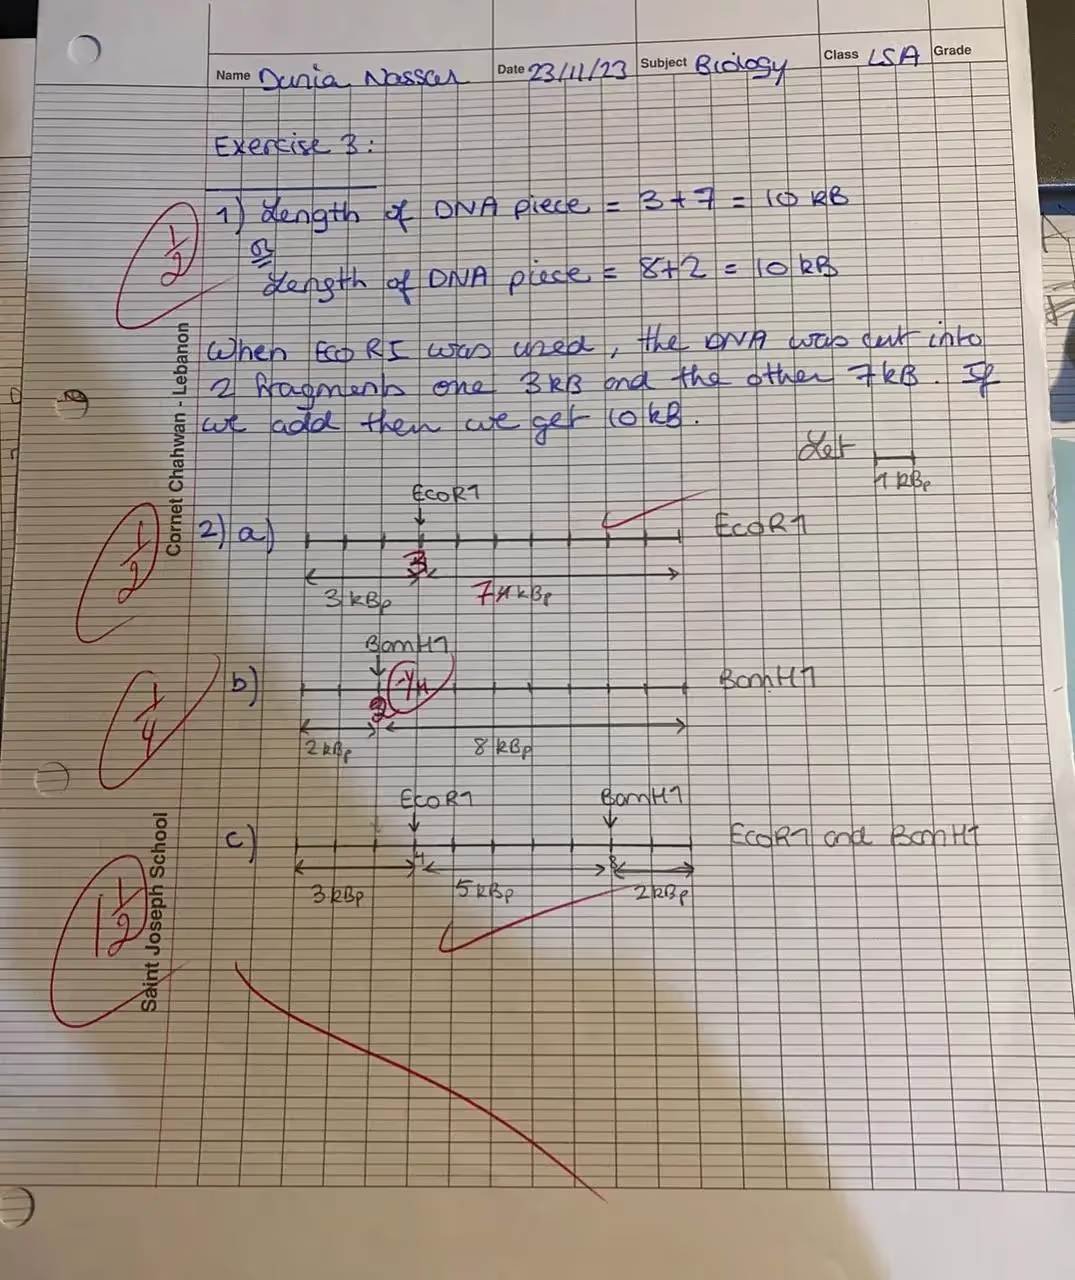 Name Dunia Nasser Date 23/11/23 Subject Biology Class LSA Grade
Exercise 3:
1) Length of DNA piece = 3+7 = 10 kB
1/2
Or
Length of DNA piece = 8+2 = 10 kB
When EcoRI was used, the DNA was cut into
2 fragments one 3kB and the other 7kB. If
we add then we get 10kB.
Let
1 kBp
EcoR1
2) a) EcoR1
1/2
3
3 kBp 7 kBp
BamH1
b) -1/4 BamH1
1/4
2
2 kBp 8 kBp
EcoR1 BamH1
c) EcoR1 and BamH1
3 kBp 5 kBp 2 kBp
1 1/2
Cornet Chahwan - Lebanon
Saint Joseph School